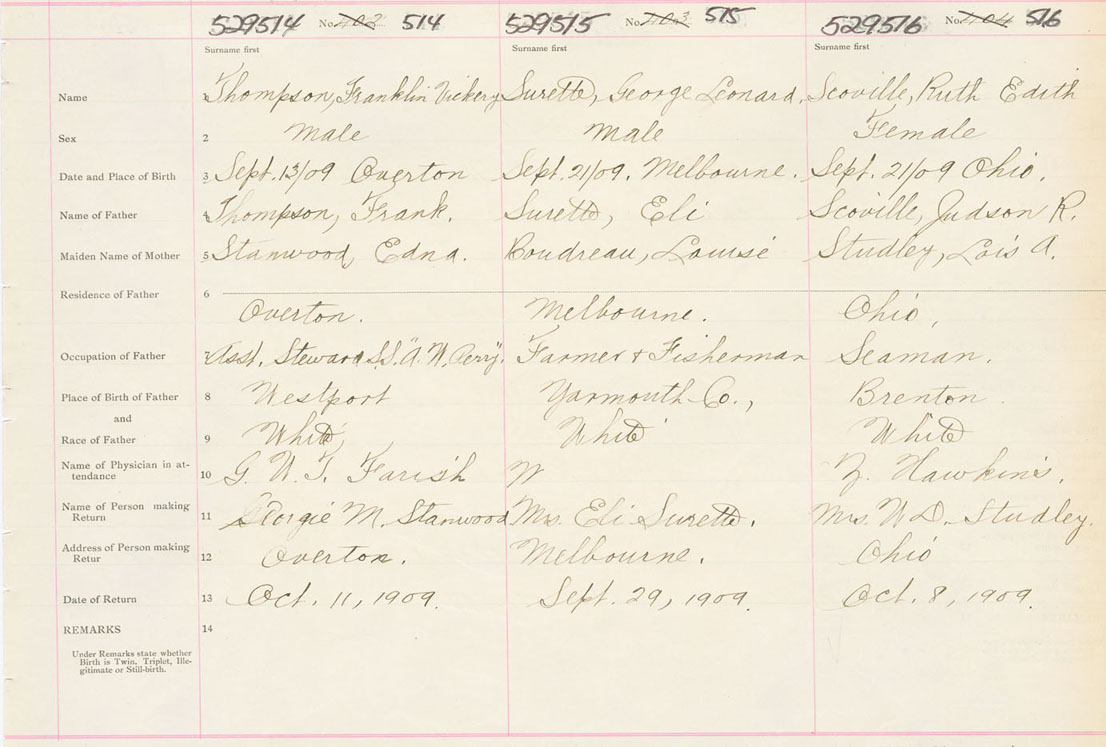 529514 No. 402 514 529515 No. 403 515 529516 No. 404 516
Surname first Surname first Surname first
Name 1 Thompson, Franklin Vickery Surette, George Leonard. Scoville, Ruth Edith
Sex 2 Male Male Female
Date and Place of Birth 3 Sept. 13/09 Overton Sept. 21/09. Melbourne. Sept. 21/09 Ohio.
Name of Father 4 Thompson, Frank. Surette, Eli Scoville, Judson R.
Maiden Name of Mother 5 Stanwood, Edna. Boudreau, Louise Studley, Lois A.
Residence of Father 6
Overton. Melbourne. Ohio,
Occupation of Father 7 Asst. Steward S.S. "A. W. Perry". Farmer & Fisherman Seaman.
Place of Birth of Father 8 Westport Yarmouth Co., Brenton.
and
Race of Father 9 White, White White
Name of Physician in at-
tendance 10 G. W. T. Farish W Z. Hawkins.
Name of Person making
Return 11 Georgie M. Stanwood Mrs. Eli Surette. Mrs. W D. Studley.
Address of Person making
Retur 12 Overton. Melbourne. Ohio
Date of Return 13 Oct. 11, 1909. Sept. 29, 1909. Oct. 8, 1909.
REMARKS 14
Under Remarks state whether
Birth is Twin, Triplet, Ille-
gitimate or Still-birth.